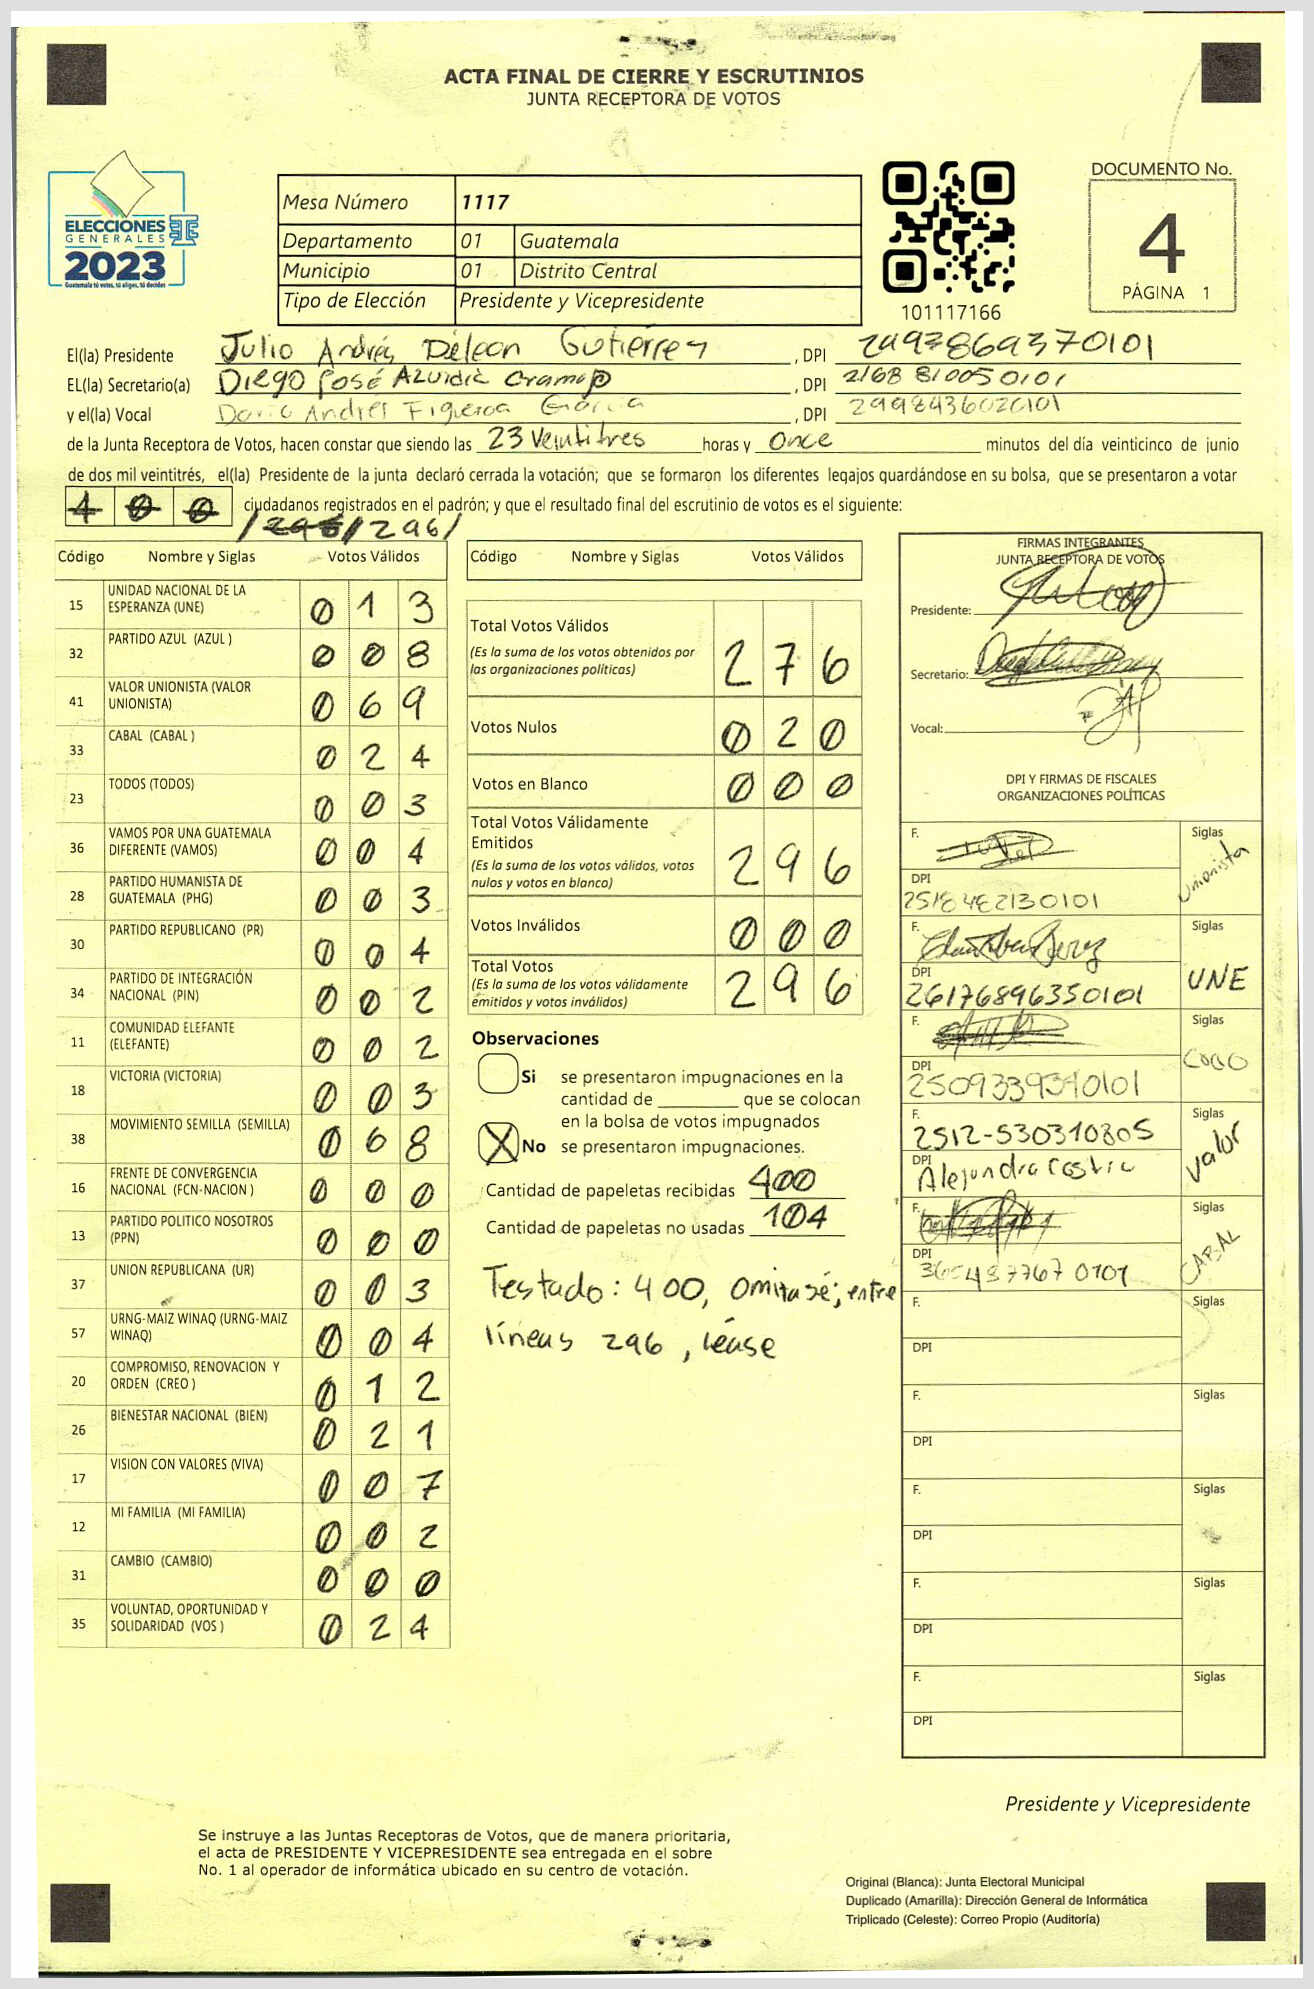 ACTA FINAL DE CIERRE Y ESCRUTINIOS
JUNTA RECEPTORA DE VOTOS
ELECCIONES
GENERALES
2023
Guatemala tú votas, tú eliges, tú decides
Mesa Número 1117
Departamento 01 Guatemala
Municipio 01 Distrito Central
Tipo de Elección Presidente y Vicepresidente
101117166
DOCUMENTO No.
4
PÁGINA 1
El(la) Presidente Julio Andrés Déleon Gutiérrez, DPI 2997869370101
EL(la) Secretario(a) Diego José, DPI 2168810050101
y el(la) Vocal Andrés Figueroa García, DPI
de la Junta Receptora de Votos, hacen constar que siendo las 23 Veintitres horas y Once minutos del día veinticinco de junio
de dos mil veintitrés, el(la) Presidente de la junta declaró cerrada la votación; que se formaron los diferentes legajos guardándose en su bolsa, que se presentaron a votar
400 ciudadanos registrados en el padrón; y que el resultado final del escrutinio de votos es el siguiente:
/296/
Código Nombre y Siglas Votos Válidos
15 UNIDAD NACIONAL DE LA ESPERANZA (UNE) 013
32 PARTIDO AZUL (AZUL ) 008
41 VALOR UNIONISTA (VALOR UNIONISTA) 069
33 CABAL (CABAL ) 024
23 TODOS (TODOS) 003
36 VAMOS POR UNA GUATEMALA DIFERENTE (VAMOS) 004
28 PARTIDO HUMANISTA DE GUATEMALA (PHG) 003
30 PARTIDO REPUBLICANO (PR) 004
34 PARTIDO DE INTEGRACIÓN NACIONAL (PIN) 002
11 COMUNIDAD ELEFANTE (ELEFANTE) 002
18 VICTORIA (VICTORIA) 003
38 MOVIMIENTO SEMILLA (SEMILLA) 068
16 FRENTE DE CONVERGENCIA NACIONAL (FCN-NACION ) 000
13 PARTIDO POLITICO NOSOTROS (PPN) 000
37 UNION REPUBLICANA (UR) 003
57 URNG-MAIZ WINAQ (URNG-MAIZ WINAQ) 004
20 COMPROMISO, RENOVACION Y ORDEN (CREO ) 012
26 BIENESTAR NACIONAL (BIEN) 021
17 VISION CON VALORES (VIVA) 007
12 MI FAMILIA (MI FAMILIA) 002
31 CAMBIO (CAMBIO) 000
35 VOLUNTAD, OPORTUNIDAD Y SOLIDARIDAD (VOS ) 024
Código Nombre y Siglas Votos Válidos
Total Votos Válidos 276
(Es la suma de los votos obtenidos por
las organizaciones políticas)
Votos Nulos 020
Votos en Blanco 000
Total Votos Válidamente
Emitidos 296
(Es la suma de los votos válidos, votos
nulos y votos en blanco)
Votos Inválidos 000
Total Votos 296
(Es la suma de los votos válidamente
emitidos y votos inválidos)
Observaciones
Si se presentaron impugnaciones en la
cantidad de ________ que se colocan
en la bolsa de votos impugnados
X No se presentaron impugnaciones.
Cantidad de papeletas recibidas 400
Cantidad de papeletas no usadas 104
Testado: 400, Omitasé; entre
líneas 296, léase
FIRMAS INTEGRANTES
JUNTA RECEPTORA DE VOTOS
Presidente:
Secretario:
Vocal:
DPI Y FIRMAS DE FISCALES
ORGANIZACIONES POLÍTICAS
F. Siglas Unionista
DPI 2518482130101
F. Siglas UNE
DPI 26176896350101
F. Siglas
DPI 2509339340101
F. 2512-530310805 Siglas Valor
DPI Alejandra
F. Siglas CABAL
DPI
F. Siglas
DPI
F. Siglas
DPI
F. Siglas
DPI
F. Siglas
DPI
F. Siglas
DPI
Presidente y Vicepresidente
Se instruye a las Juntas Receptoras de Votos, que de manera prioritaria,
el acta de PRESIDENTE Y VICEPRESIDENTE sea entregada en el sobre
No. 1 al operador de informática ubicado en su centro de votación.
Original (Blanca): Junta Electoral Municipal
Duplicado (Amarilla): Dirección General de Informática
Triplicado (Celeste): Correo Propio (Auditoría)